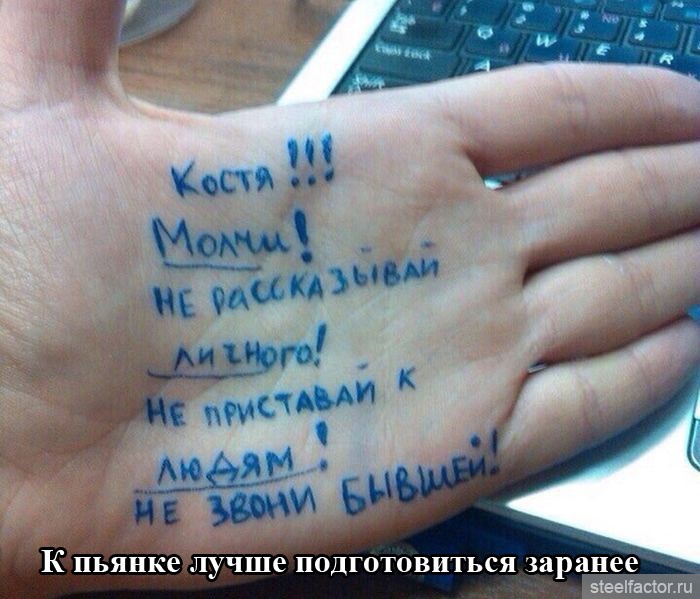 Костя !!!
Молчи!
НЕ РАССКАЗЫВАЙ
личного!
НЕ ПРИСТАВАЙ К
людям!
НЕ ЗВОНИ БЫВШЕЙ!
К пьянке лучше подготовиться заранее
steelfactor.ru